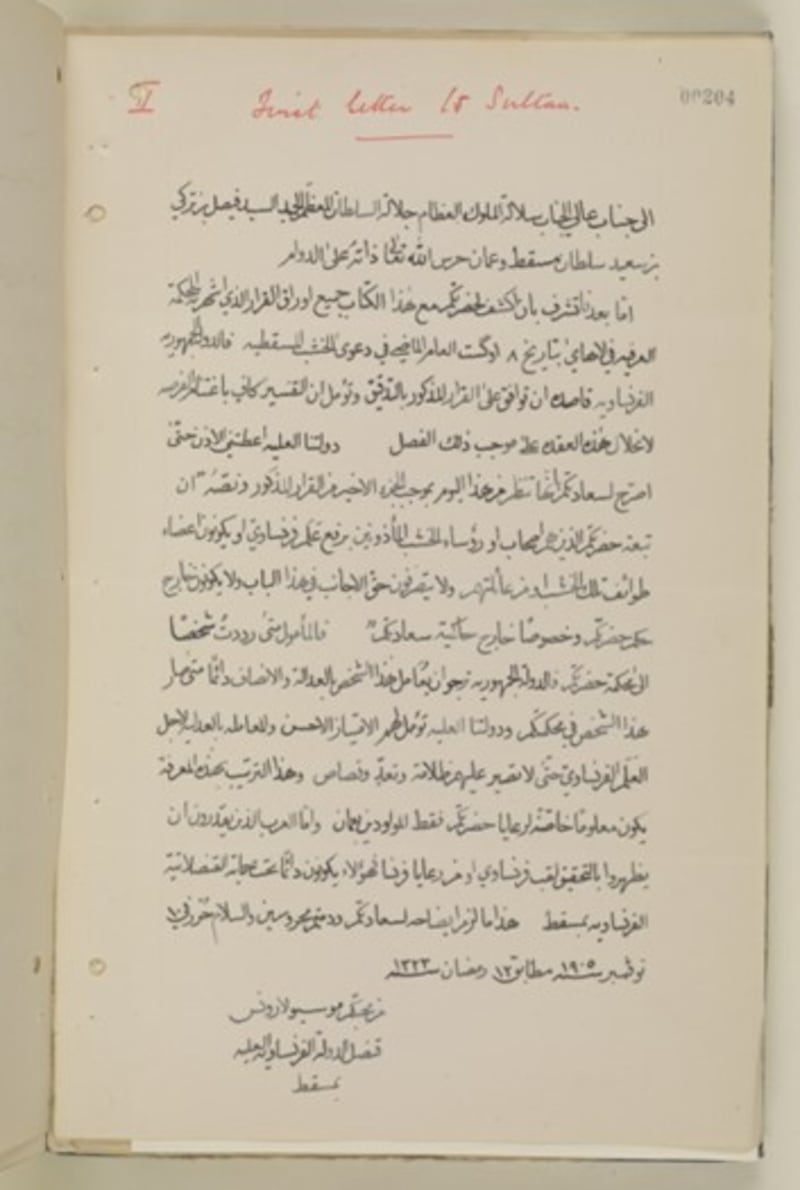 II
First letter to Sultan.
00204
الى جناب عالي الجناب سلالة الملوك العظام جلالة السلطان المعظم السيد فيصل بن تركي
بن سعيد سلطان مسقط وعمان حرس الله تعالى ذاته على الدوام
اما بعد نتشرف بان نكشف لحضرتكم مع هذا الكتاب جميع اوراق القرار الذي المحكمة
في لاهاي بتاريخ ٨ اوگست العام الماضي في دعوى الخشب المسقطيه فالدولة الجمهوريه
الفرنساويه قاصده ان توافق على القرار المذكور بالتدقيق ونؤمل ان التفسير
لانحلال هذه العقده على موجب ذلك الفصل دولتنا العليه اعطتني الاذن حتى
اصرح لسعادتكم بانها تنظر من هذا اليوم بموجب الجزء الاخير من القرار المذكور ونصّه " ان
تبعة حضرتكم الذين هم اصحاب او رؤساء الخشب المأذونين برفع علم فرنساوي او يكونون اعضاء
طوائف تلك الخشب او من عائلتهم ولا يتصرفون حق الاجانب في هذا الباب ولا يكونون خارج
حكم حضرتكم وخصوصًا خارج حاكمية سعادتكم" فالمأمول متى رددت شخصًا
الى محكمة حضرتكم فالدولة الجمهوريه ترجو ان يعامل هذا الشخص بالعدالة والانصاف دائمًا متى صار
هذا الشخص في محكمتكم ودولتنا العليه تؤمل لهم الامتياز الاحسن والمعامله بالعدايه لاجل
العلم الفرنساوي حتى لا تصير عليهم ظلامة وتعدّ وقصاص وهذا الترتيب بهذه المعرفة
يكون معلومًا خاصةً لرعايا حضرتكم فقط المولودين بعمان واما العرب الذين يقدرون ان
يظهروا بالتحقيق لقب فرنساوي او من رعايا فرنسا فهؤلاء يكونون دائمًا تحت حماية القنصلاتية
الفرنساويه بمسقط هذا ما لزم ايضاحه لسعادتكم ودمتم محروسين والسلام حرّر في ٧
نوفمبر سنة ١٩٠٥ مطابق ١٢ رمضان سنة ١٣٢٣
من محبكم موسيو لارونس
قنصل الدولة الفرنساوية العليه
بمسقط